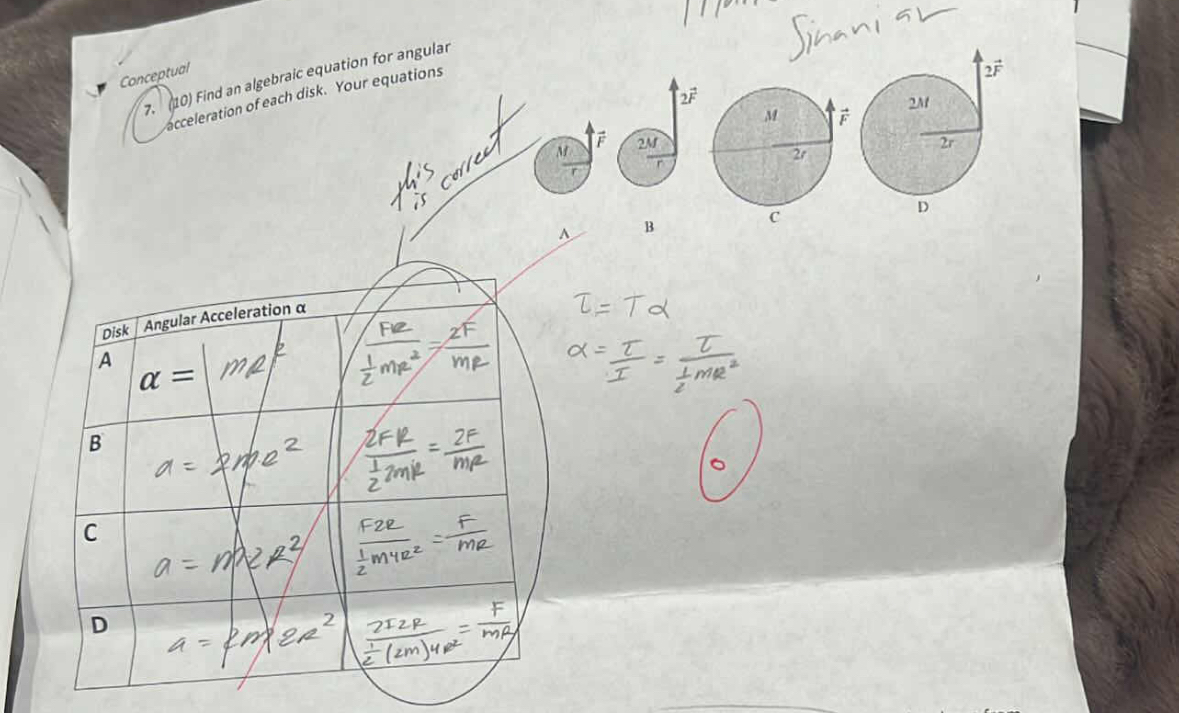 Sinanian
Conceptual
7. (10) Find an algebraic equation for angular
acceleration of each disk. Your equations
this
is correct
M r F⃗
2M r 2F⃗
M 2r F⃗
2M 2r 2F⃗
A B C D
Disk Angular Acceleration α
A α = mR² FR / ½mR² = 2F / mR
B a = 2mR² 2FR / ½2mR = 2F / mR
C a = m2R² F2R / ½m4R² = F / mR
D a = 2m2R² 2F2R / ½(2m)4R² = F / mR
τ = Iα
α = τ / I = τ / ½mR²
0